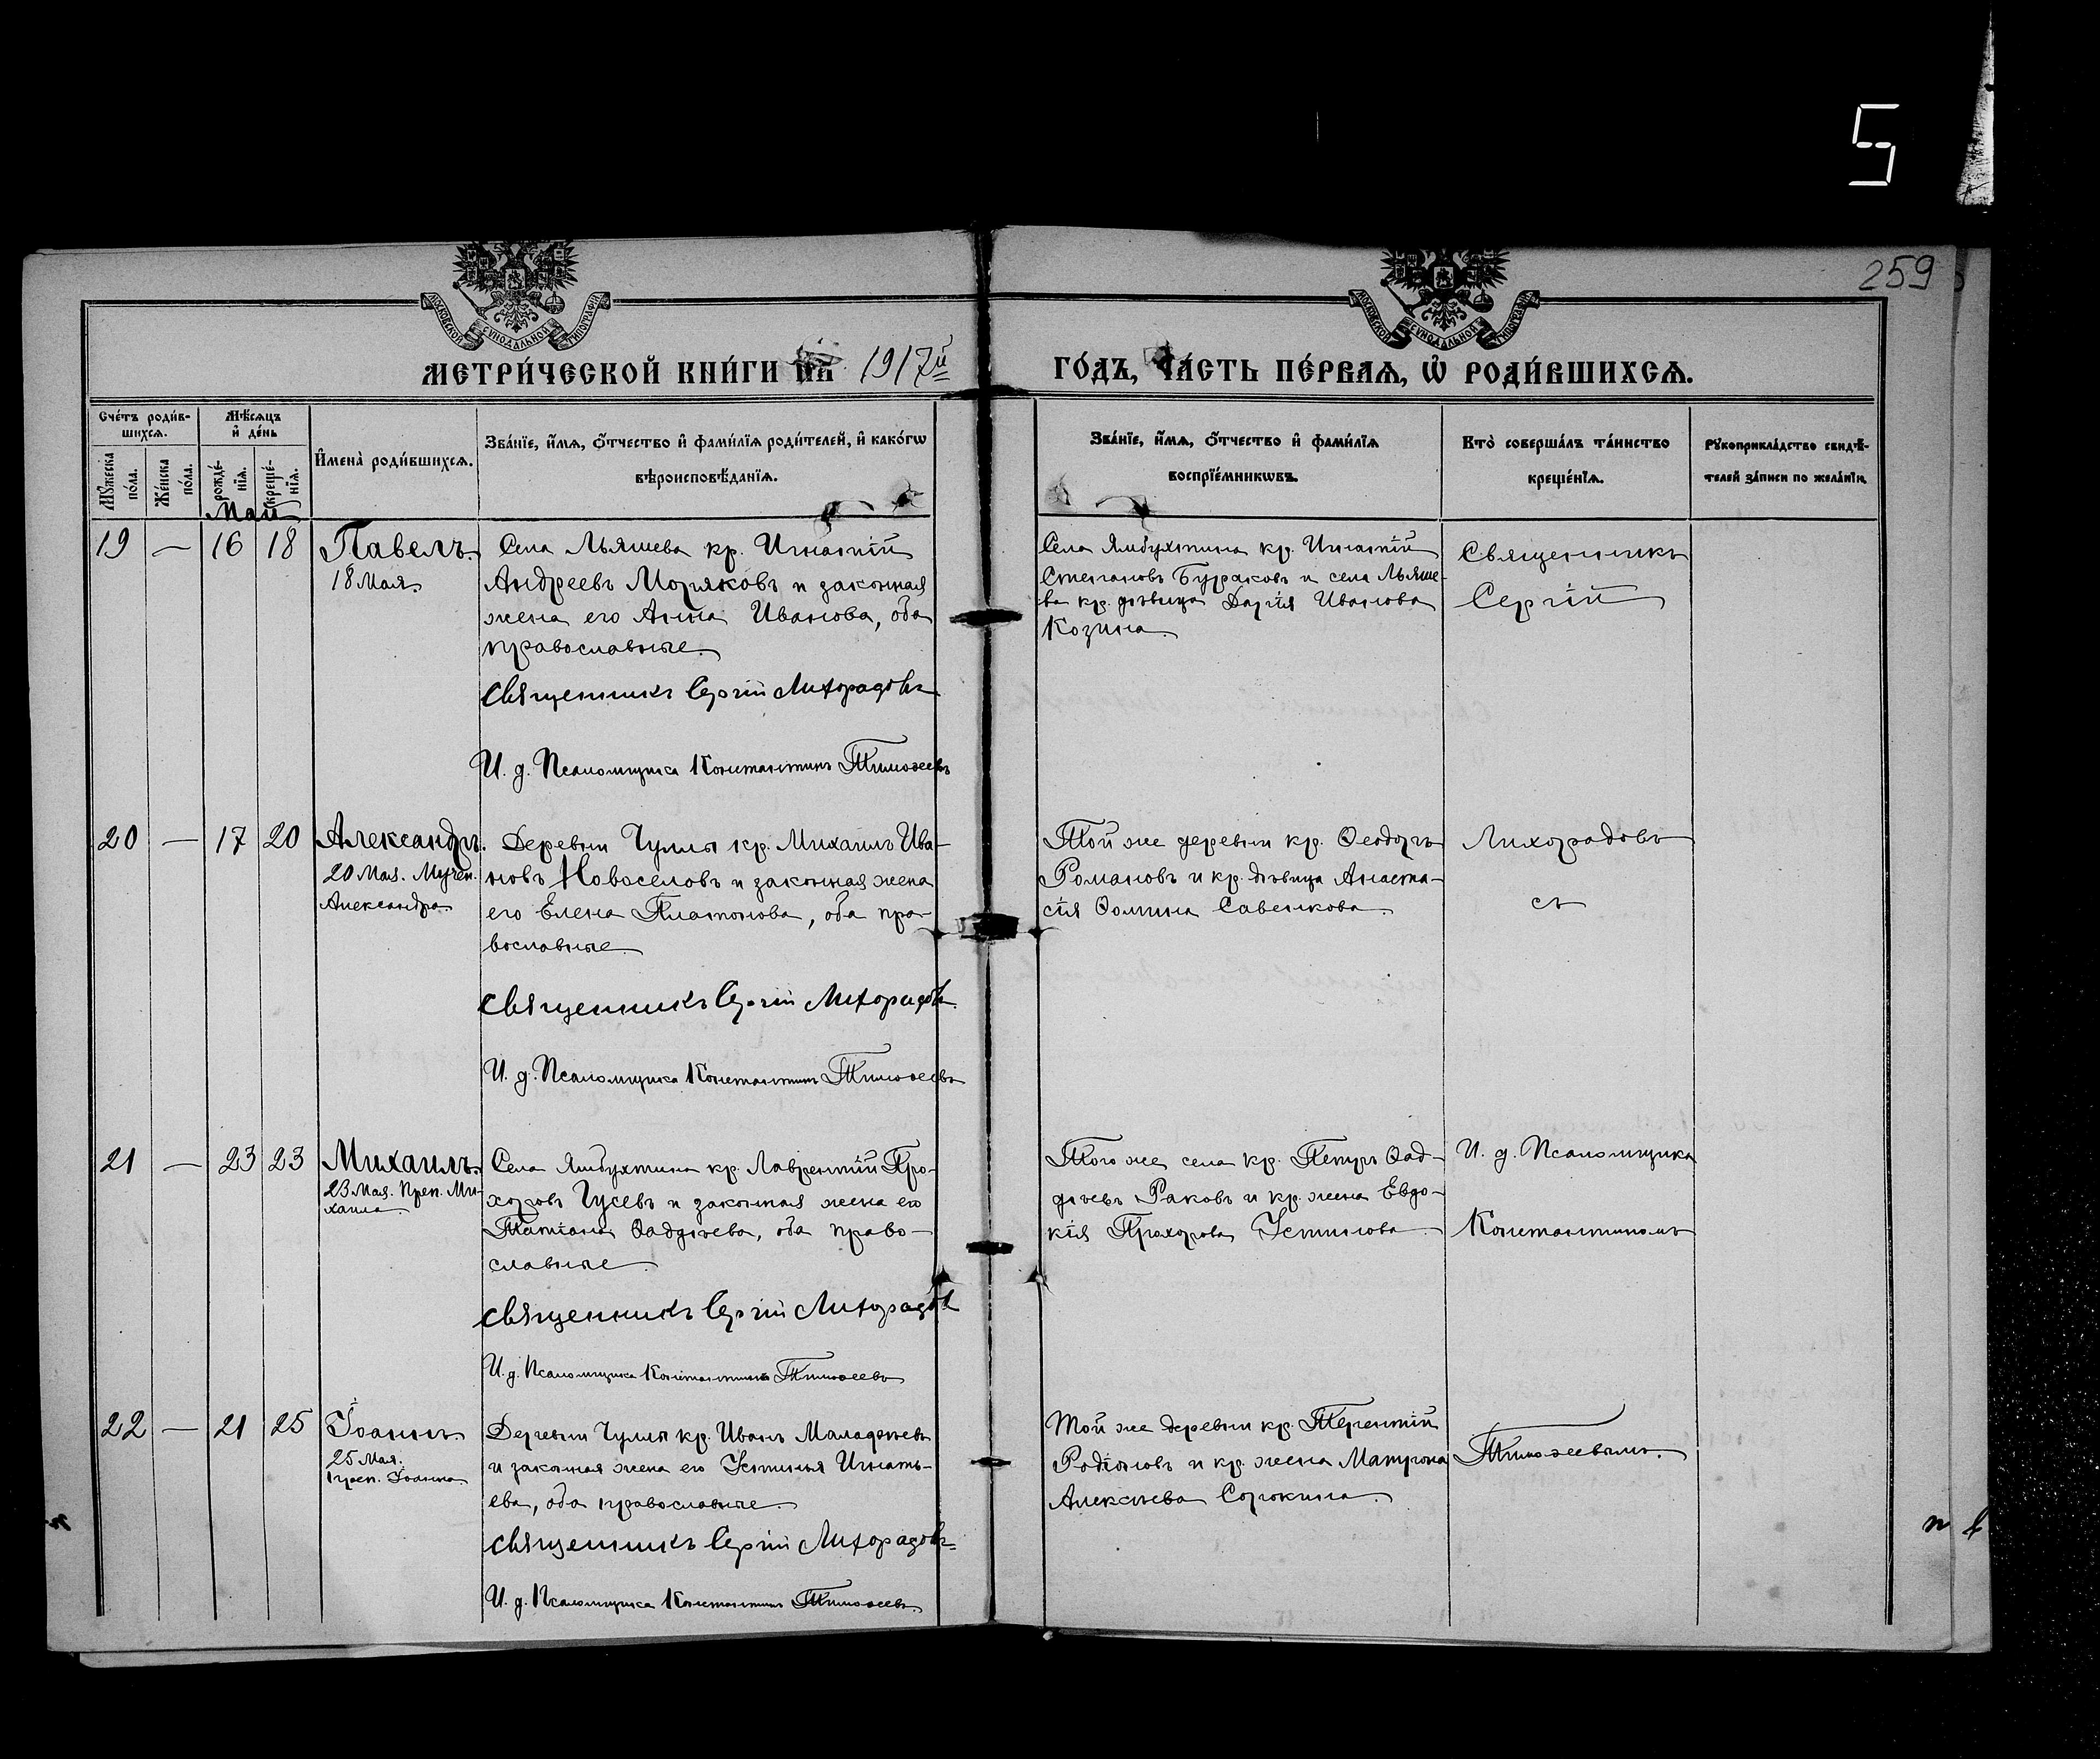 5
259
МОСКОВСКОЙ СѴНОДАЛЬНОЙ ТИПОГРАФІИ
МОСКОВСКОЙ СѴНОДАЛЬНОЙ ТИПОГРАФІИ
МЕТРИ́ЧЕСКОЙ КНИ́ГИ НА 1917й ГО́ДЪ, ЧА́СТЬ ПЕ́РВАѦ, Ѡ҆ РОДИ́ВШИХСѦ.
Сче́тъ роди́в-
шихсѧ.
Мѣ́сѧцъ
и҆ де́нь
Мꙋ́жеска
по́ла.
Же́нска
по́ла.
рожде́-
нїѧ.
креще́-
нїѧ.
И҆мена̀ роди́вшихсѧ.
Зва́нїе, и҆́мѧ, ѻ҆́тчество и҆ фами́лїѧ роди́телей, и҆ како́гѡ
вѣроисповѣ́данїѧ.
Зва́нїе, и҆́мѧ, ѻ҆́тчество и҆ фами́лїѧ
воспрїе́мникѡвъ.
Кто̀ соверша́лъ та́инство
креще́нїѧ.
Рꙋкоприкла́дство свидѣ́-
телей за́писи по жела́нїю.
Май
19 — 16 18
Павелъ.
18 Мая.
Села Льяшева кр. Игнатій
Андреевъ Моряковъ и законная
жена его Анна Иванова, оба
православные.
Священникъ Сергій Лихорадовъ
И. д. Псаломщика Константинъ Тимоѳеевъ
Села Ямбухтина кр. Игнатій
Степановъ Бураковъ и села Льяше-
ва кр. дѣвица Дарія Иванова
Козина.
Священникъ
Сергій
20 — 17 20
Александръ.
20 Мая. Мучен.
Александра.
Деревни Чулпы кр. Михаилъ Ива-
новъ Новоселовъ и законная жена
его Елена Платонова, оба пра-
вославные.
Священникъ Сергій Лихорадовъ.
И. д. Псаломщика Константинъ Тимоѳеевъ
Той же деревни кр. Ѳеодоръ
Романовъ и кр. дѣвица Анаста-
сія Ѳомина Савенкова.
Лихорадовъ
съ
21 — 23 23
Михаилъ.
23 Мая. Преп. Ми-
хаила.
Села Ямбухтина кр. Лаврентій Про-
хоровъ Гусевъ и законная жена его
Татіана Ѳаддѣева, оба право-
славные.
Священникъ Сергій Лихорадовъ
И. д. Псаломщика Константинъ Тимоѳеевъ
Того же села кр. Петръ Ѳад-
дѣевъ Раковъ и кр. жена Евдо-
кія Прохорова Устинова.
И. д. Псаломщика
Константиномъ
22 — 21 25
Іоаннъ.
25 Мая.
Іоанна.
Деревни Чулпы кр. Иванъ Маладѣевъ
и законная жена его Устинья Игнать-
ева, оба православные.
Священникъ Сергій Лихорадовъ
И. д. Псаломщика Константинъ Тимоѳеевъ.
Той же деревни кр. Терентій
Родіоновъ и кр. жена Матрона
Алексѣева Сорокина.
Тимоѳеевымъ.